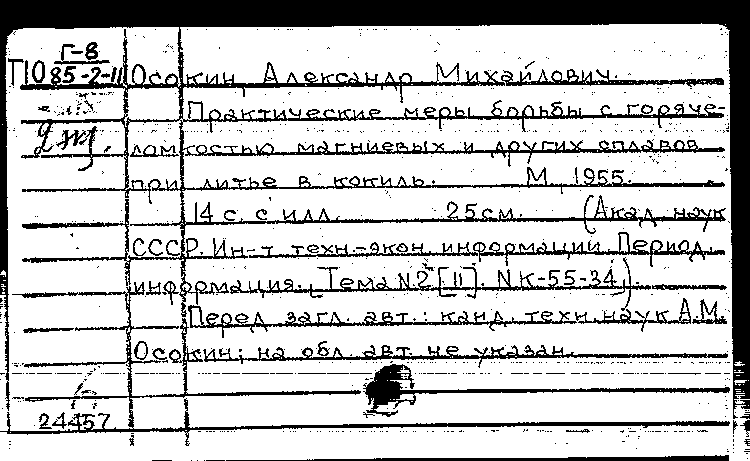 Г-8
ПО 85-2-11 Осокин, Александр Михайлович.
Практические меры борьбы с горяче-
2 экз. ломкостью магниевых и других сплавов
при литье в кокиль. М., 1955.
14 с. с илл. 25 см. (Акад. наук
СССР. Ин-т техн.-экон. информации. Период.
информация. [Тема N 2 [11]. N К-55-34).
Перед загл. авт.: канд. техн. наук А.М.
Осокин; на обл. авт. не указан.
24457